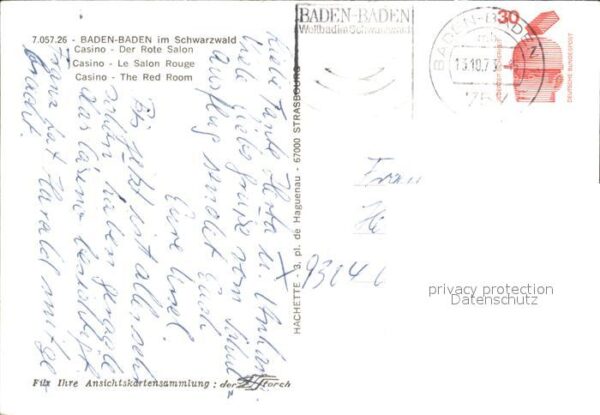 7.057.26 - BADEN-BADEN im Schwarzwald
Casino - Der Rote Salon
Casino - Le Salon Rouge
Casino - The Red Room
Liebe Tante Herta u. Onkel
viele liebe Grüße vom Schul
Ausflug sendet Euch
Eure Ursel.
Bis jetzt ist alles sehr
schön, haben gerade
das Casino besichtigt.
hat Harald mitge-
bracht.
HACHETTE - 3, pl. de Haguenau - 67000 STRASBOURG
BADEN-BADEN
Weltbad im Schwarzwald
BADEN-BADEN
13.10.73
757
30
DEUTSCHE BUNDESPOST
Frau
He
X 93142
privacy protection
Datenschutz
Für Ihre Ansichtskartensammlung : der Storch